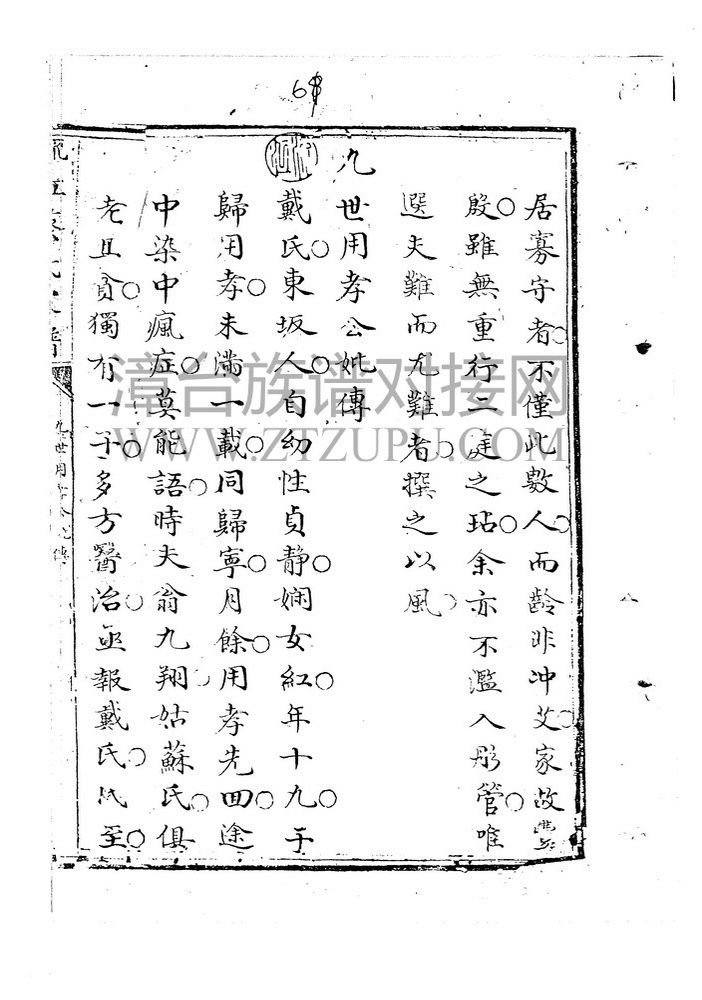 69
居寡守者不僅此數人而齡非冲艾家故豐
殷雖無重行二庭之玷余亦不濫入彤管唯
選夫難而尤難者撰之以風
九世用孝公妣傳
戴氏東坂人自幼性貞静嫻女紅年十九于
歸用孝未滿一載同歸寧月餘用孝先回途
中染中瘋症莫能語時夫翁九翔姑蘇氏俱
老且貧獨有一子多方醫治亟報戴氏氏至
氏
九世用孝公妣傳
漳台族谱对接网
WWW.ZTZUPU.COM